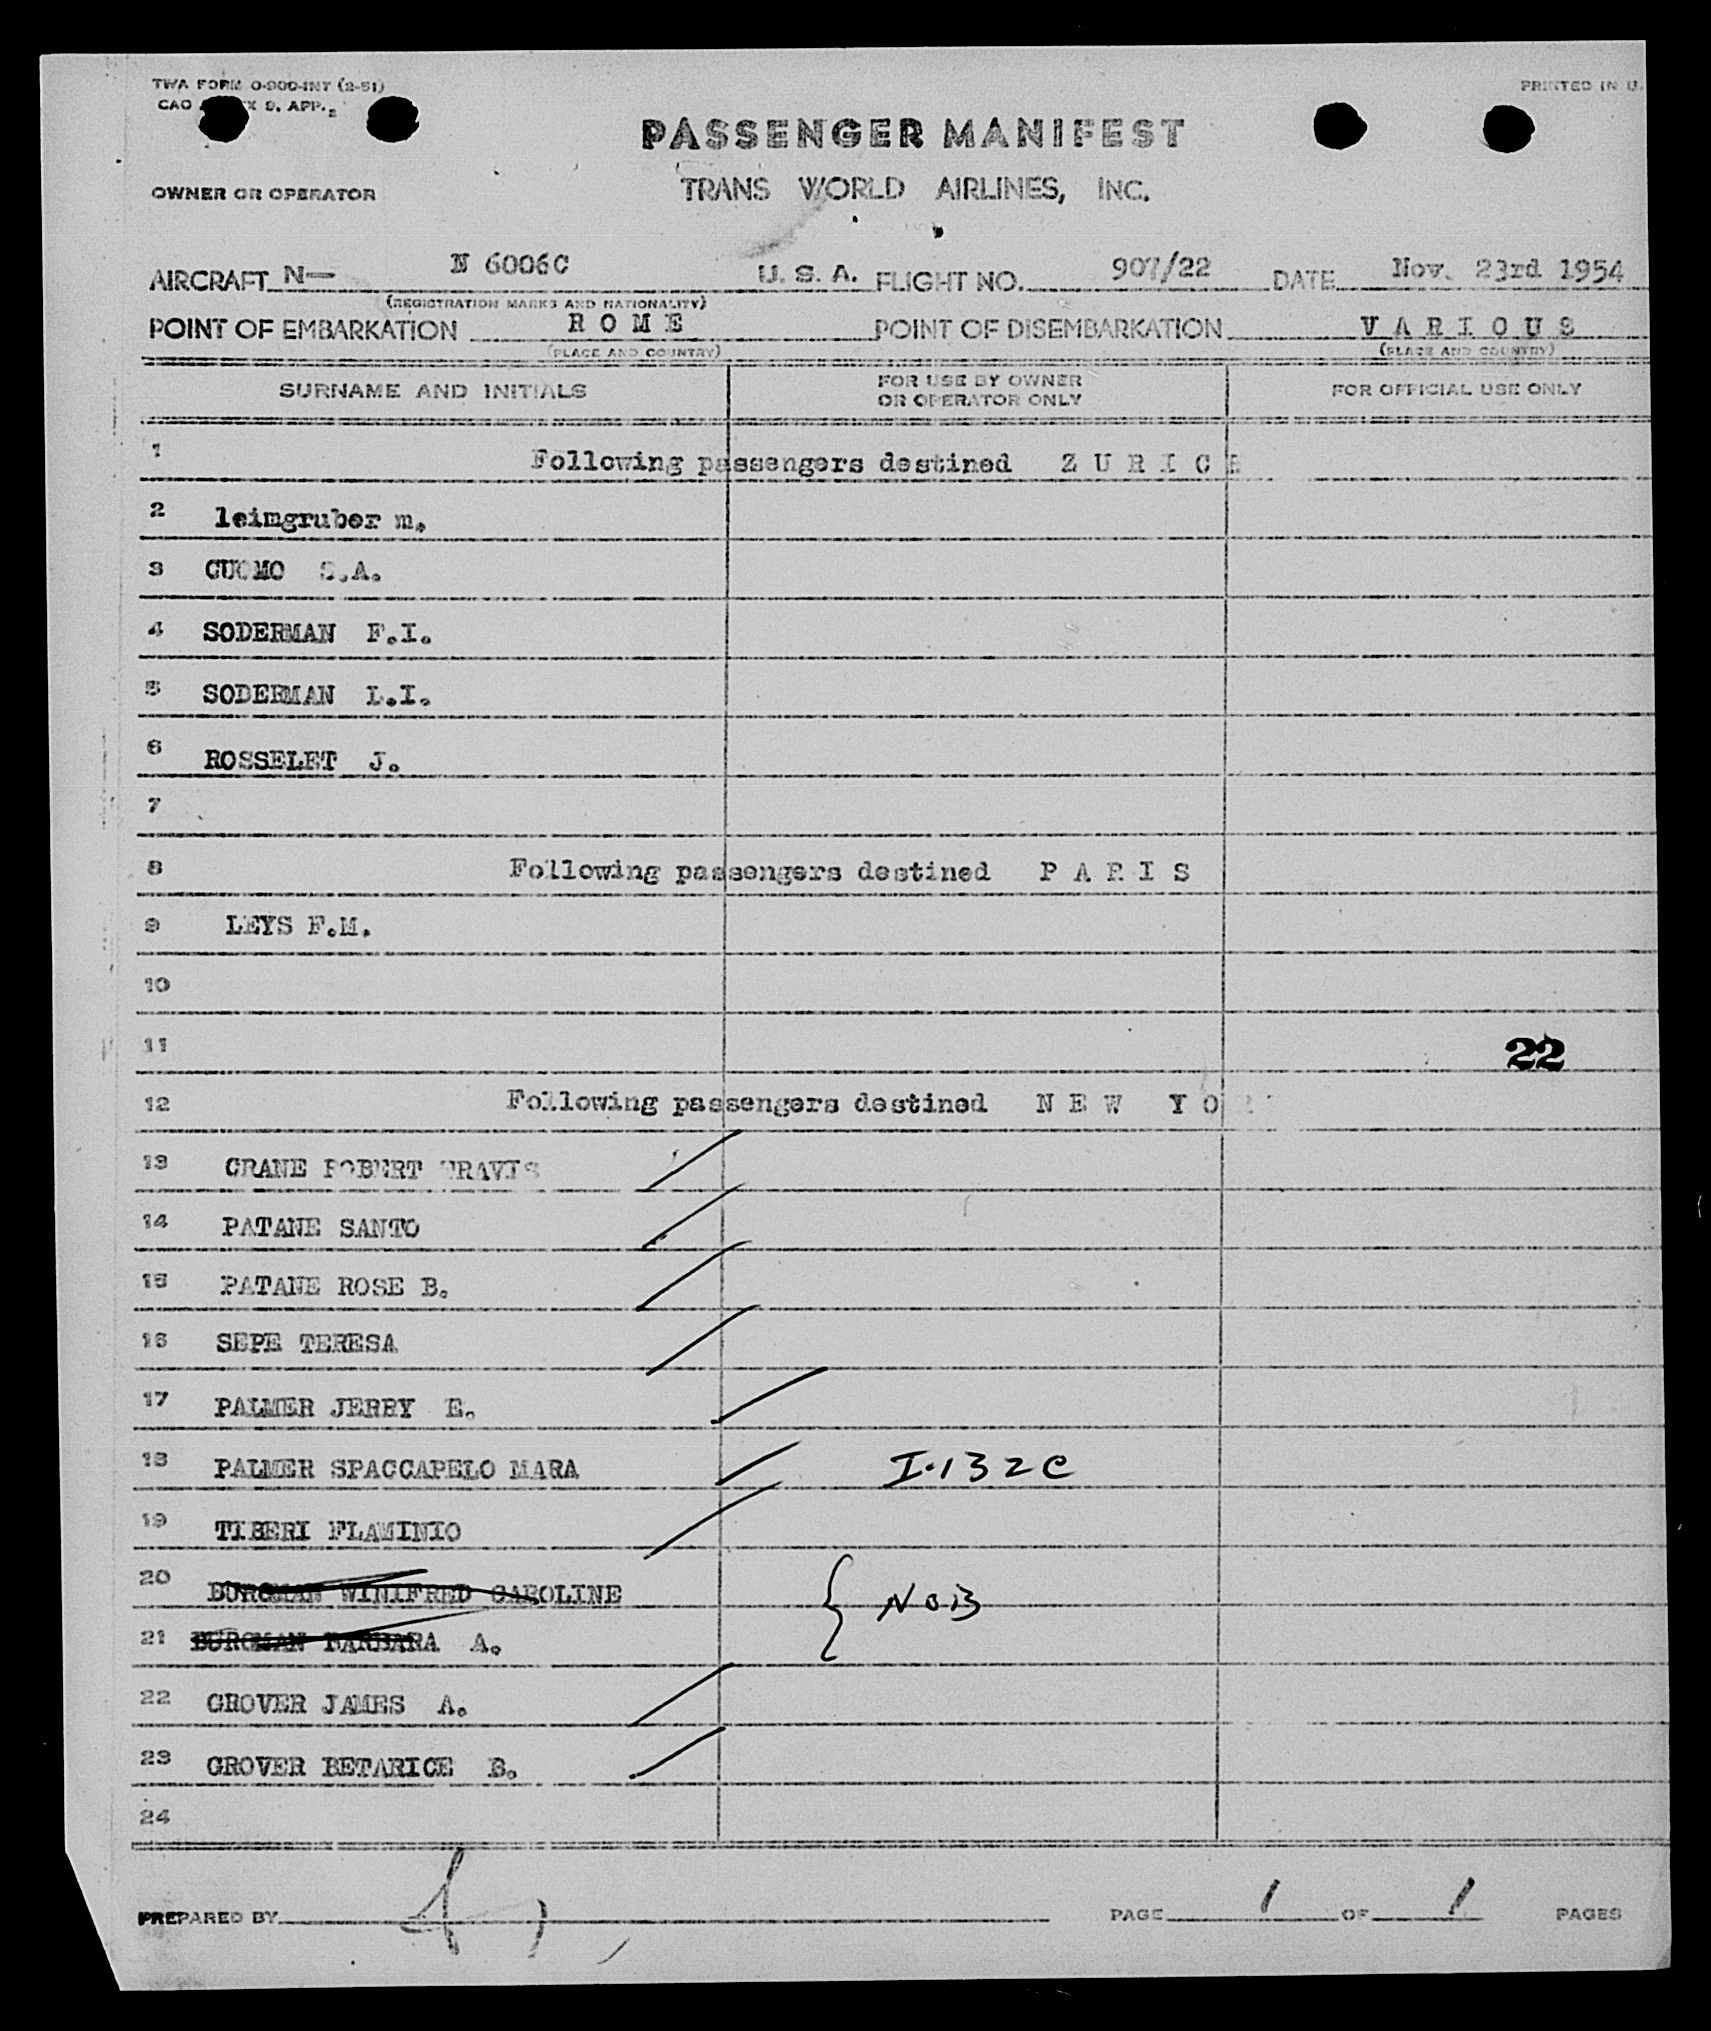 TWA FORM 0-900-INT (2-51)
PRINTED IN U.
CAO X 9. APP. 2
PASSENGER MANIFEST
OWNER OR OPERATOR
TRANS WORLD AIRLINES, INC.
AIRCRAFT N— N 6006C U. S. A. FLIGHT NO. 907/22 DATE Nov. 23rd 1954
(REGISTRATION MARKS AND NATIONALITY)
POINT OF EMBARKATION R O M E POINT OF DISEMBARKATION V A R I O U S
(PLACE AND COUNTRY) (PLACE AND COUNTRY)
SURNAME AND INITIALS
FOR USE BY OWNER
OR OPERATOR ONLY
FOR OFFICIAL USE ONLY
1 Following passengers destined Z U R I C H
2 leimgruber m.
3 CUOMO S.A.
4 SODERMAN F.I.
5 SODERMAN L.I.
6 ROSSELET J.
7
8 Following passengers destined P A R I S
9 LEYS F.M.
10
11 22
12 Following passengers destined N E W Y O R
13 CRANE ROBERT TRAVIS
14 PATANE SANTO
15 PATANE ROSE B.
16 SEPE TERESA
17 PALMER JERRY E.
18 PALMER SPACCAPELO MARA I-132C
19 TIBERI FLAMINIO
20 BURGMAN WINIFRED CAROLINE
NOB
21 BURGMAN BARBARA A.
22 GROVER JAMES A.
23 GROVER BETARICE B.
24
PREPARED BY PAGE 1 OF 1 PAGES